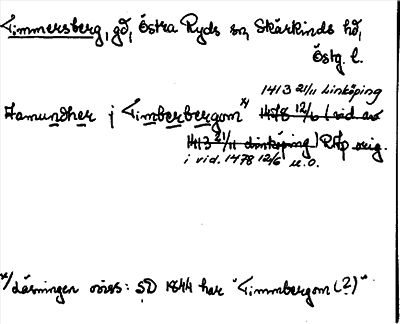 Timmersberg, gd, Östra Ryds sn, Skärkinds hd,
Östg. l.
1413 21/11 Linköping
Hamundher j Timberbergom x) 1478 12/6 (vid av
1413 21/11 Linköping) RAp orig.
i vid. 1478 12/6 u.o.
x) Läsningen oviss: SD 1844 har "Timmbergom (?)".